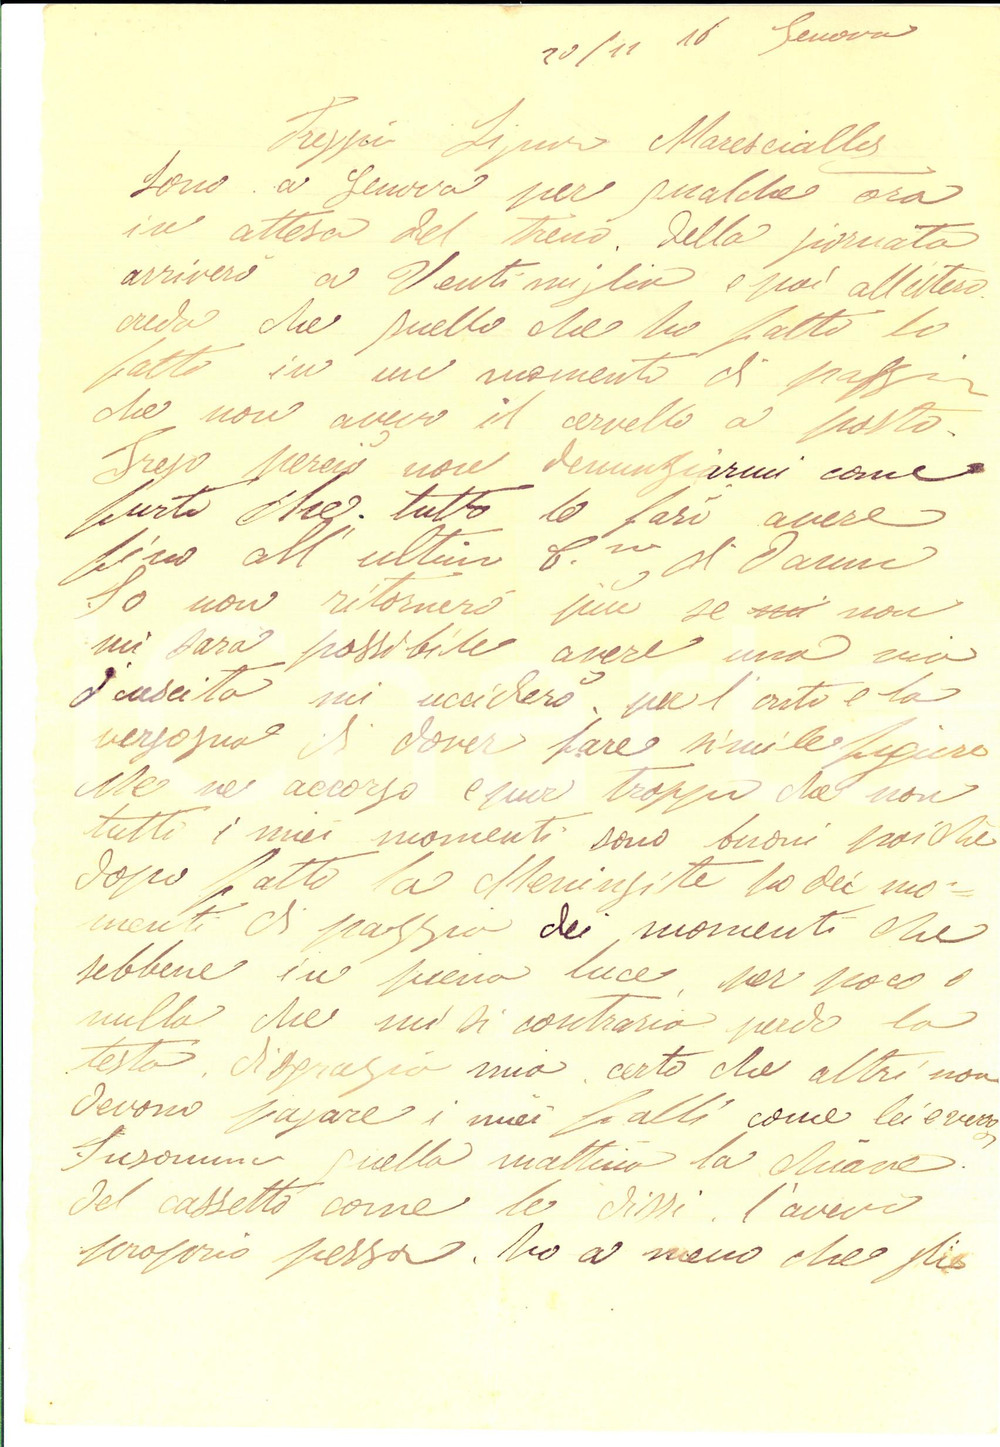 20/11 16 Genova
Preggio Signor Maresciallo
Sono a Genova per qualche ora
in attesa del treno. Della giornata
arriverò a Ventimiglia e poi all'estero.
credo che quello che ho fatto lo
fatto in un momento di pazzia
che non avevo il cervello a posto.
Prego perciò non denunziarmi come
furto che tutto le farò avere
fino all'ultimo C.mo di
Io non ritornerò più se mi non
mi sarà possibile avere una via
d'uscita mi ucciderò. per l'onta e la
vergogna di dover fare simile figura
Me ne accorgo e pur troppo che non
tutti i miei momenti sono buoni poichè
dopo fatto la Meningite ho dei mo=
menti di pazzia dei momenti che
sebbene in piena luce, per poco o
nulla che mi si contraria perdo la
testa, disgrazia mia. certo che altri non
devono pagare i miei falli come lei e
Insomma quella mattina la chiave
del cassetto come le dissi, l'avevo
proprio persa. ho a meno che gli